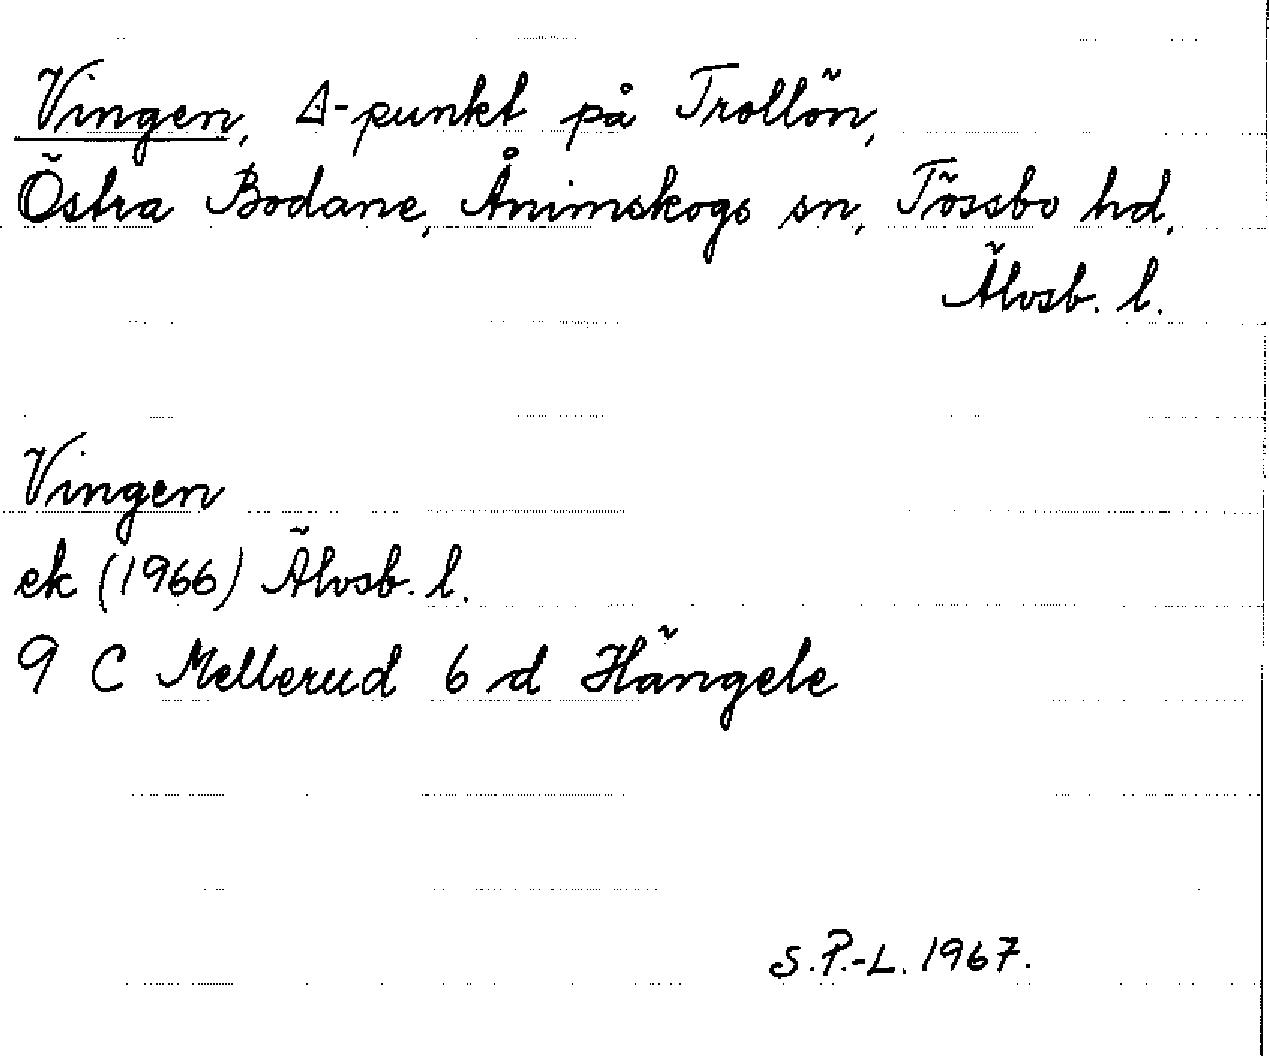 Vingen, Δ-punkt på Trollön,
Östra Bodane, Ånimskogs sn, Tössbo hd,
Älvsb. l.
Vingen
ek (1966) Älvsb. l.
9 C Mellerud 6 d Hängele
S.P.-L. 1967.